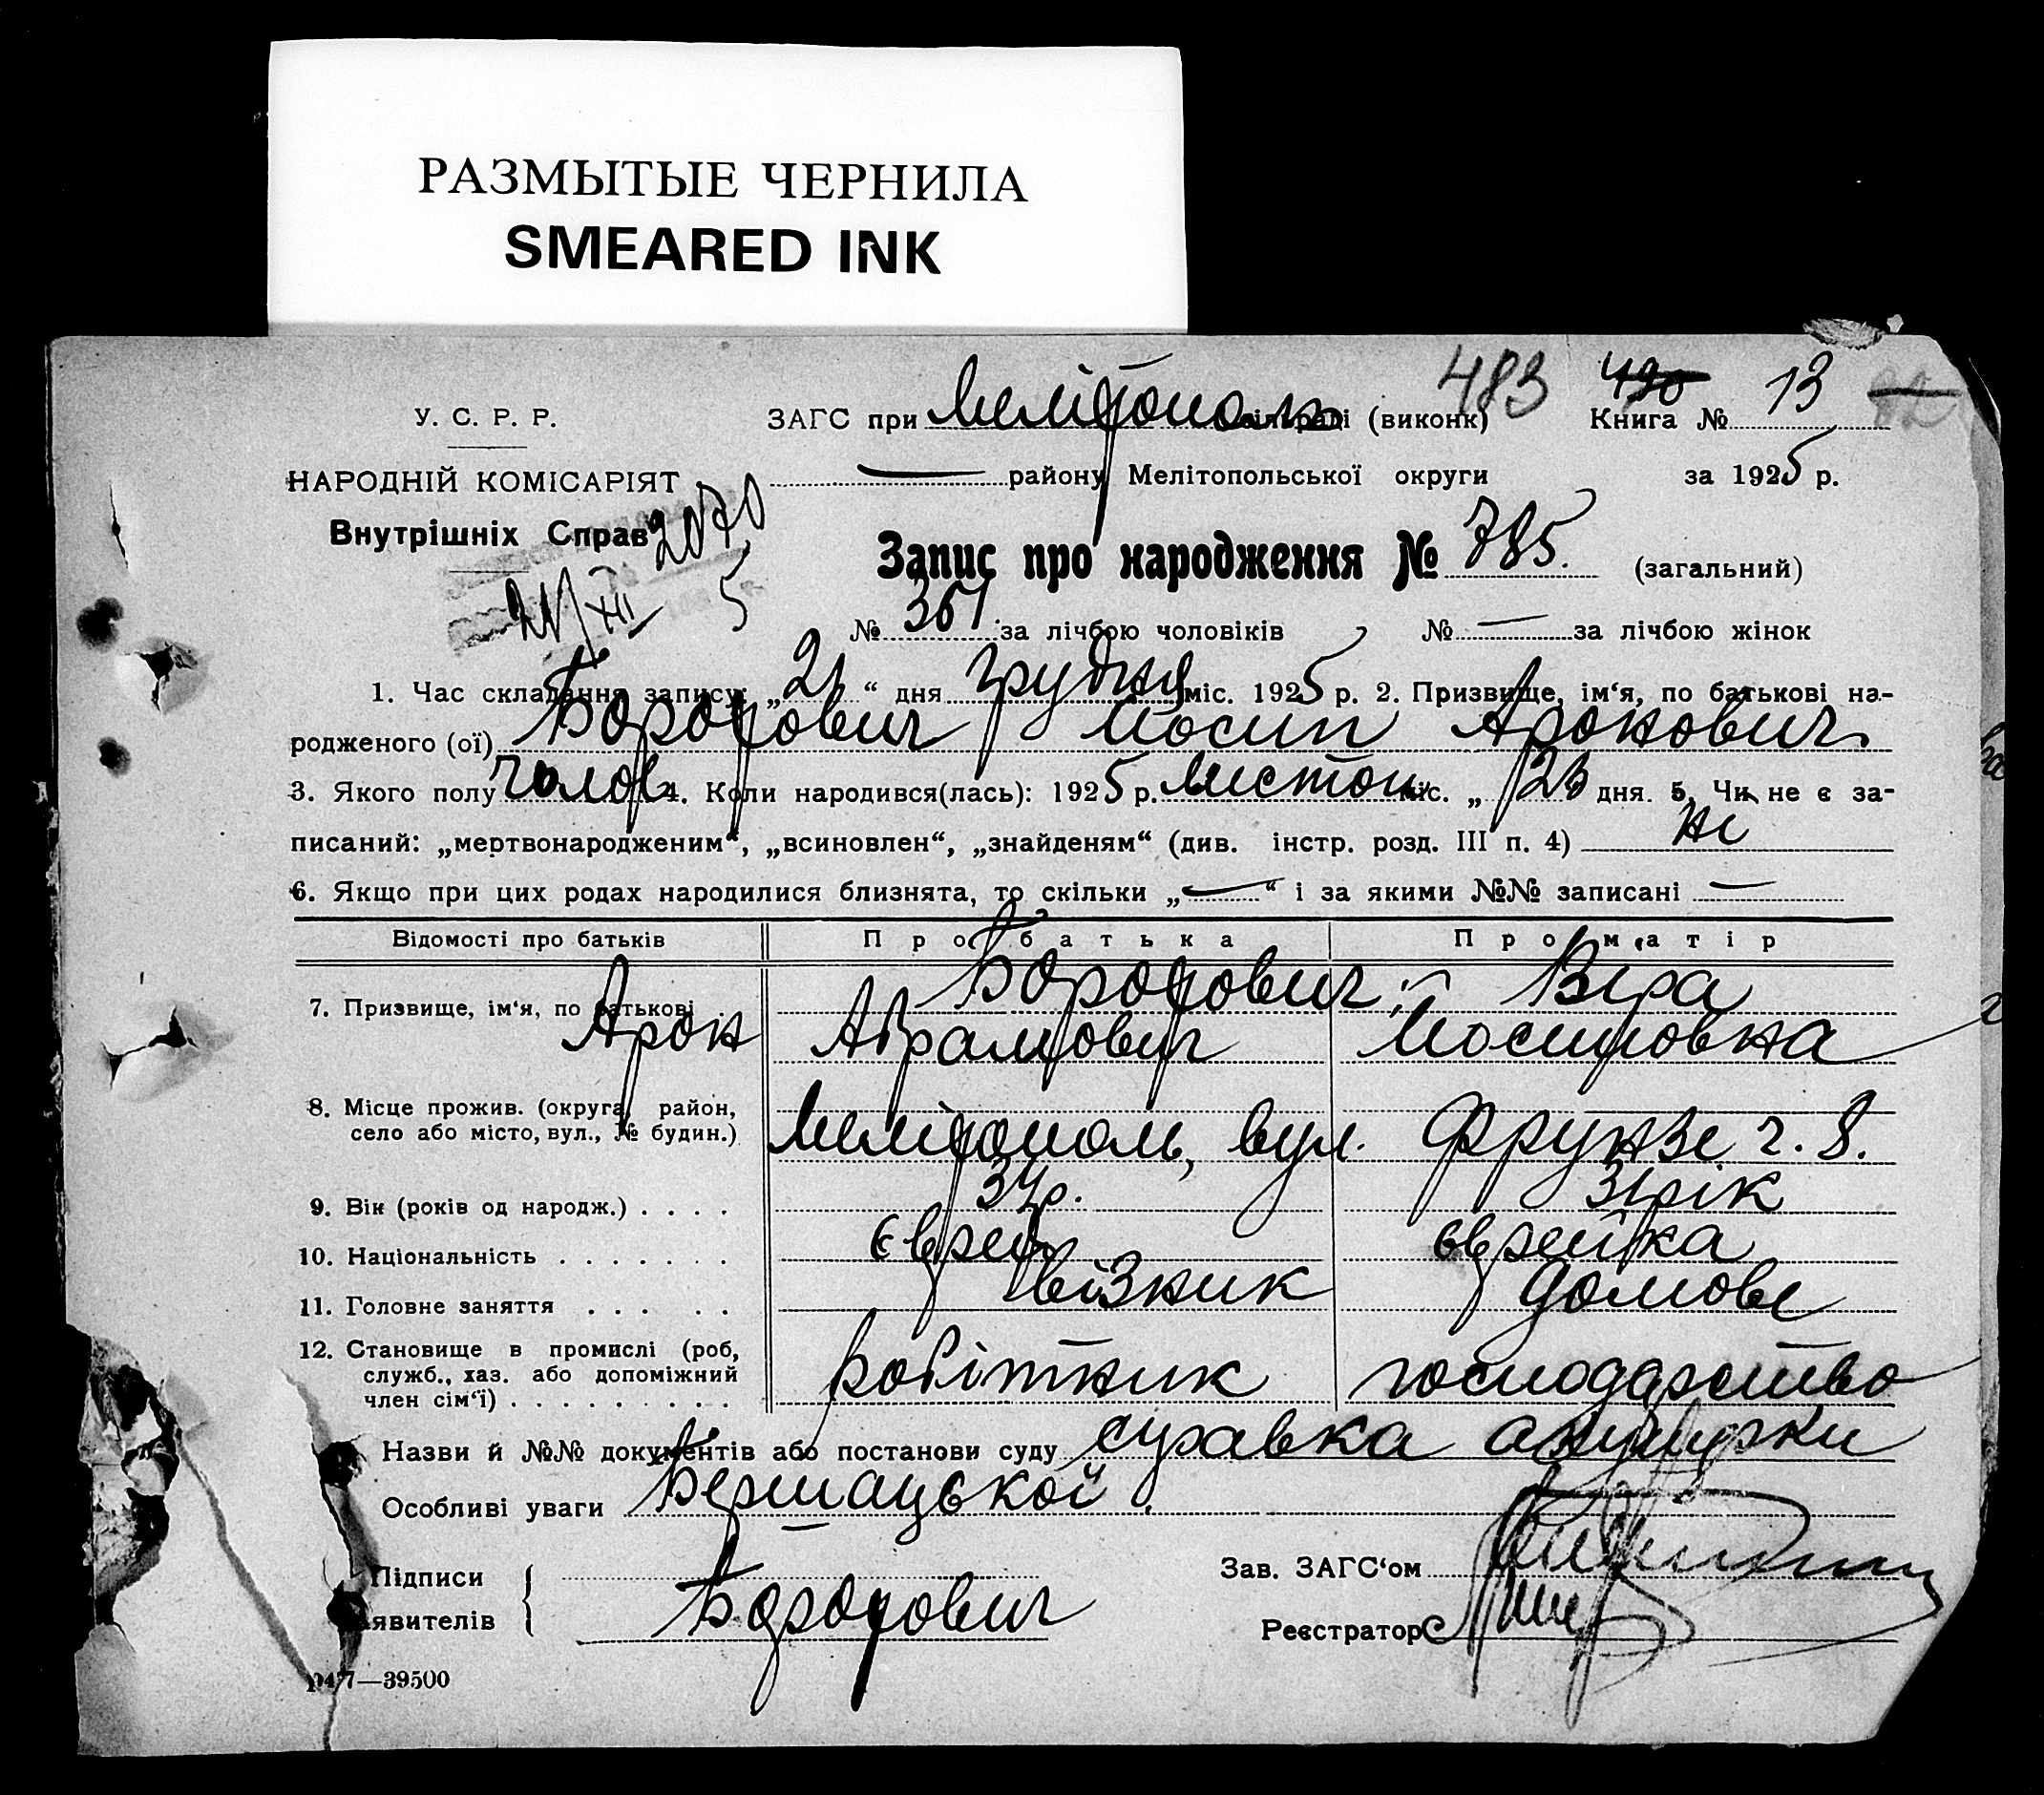 РАЗМЫТЫЕ ЧЕРНИЛА
SMEARED INK
483 490 13
У. С. Р. Р. ЗАГС при Мелітополь сільраді (виконк) Книга №
НАРОДНІЙ КОМІСАРІЯТ — району Мелітопольської округи за 1925 р.
Внутрішніх Справ 2070
Запис про народження № 785. (загальний)
21/XII 5
№ 361. за лічбою чоловіків № — за лічбою жінок
1. Час складання запису: „21“ дня грудня міс. 1925 р. 2. Призвище, ім‘я, по батькові на-
родженого (ої) Бородович Йосип Аронович
3. Якого полу чолов. 4. Коли народився(лась): 1925 р. листоп. міс. „23 дня. 5. Чи не є за-
писаний: „мертвонародженим“, „всиновлен“, „знайденям“ (див. інстр. розд. III п. 4) ні
6. Якщо при цих родах народилися близнята, то скільки „—“ і за якими №№ записані —
Відомості про батьків Про батька Про матір
7. Призвище, ім‘я, по батькові Бородович Віра
Арон Абрамович Йосиповна
8. Місце прожив. (округа, район,
село або місто, вул., № будин.) Мелітополь, вул. Фрунзе ч. 8.
9. Вік (років од народж.) . . . . 34 р. 31 рік
10. Національність . . . . . . . єврей єврейка
11. Головне заняття . . . . . візник домове
12. Становище в промислі (роб,
служб., хаз. або допоміжний
член сім‘ї) . . . . . . . . . робітник господарство
Назви й №№ документів або постанови суду справка акушерки
Особливі уваги Бершацької.
Підписи
явителів Бородович
Зав. ЗАГС‘ом
Реєстратор
—39500